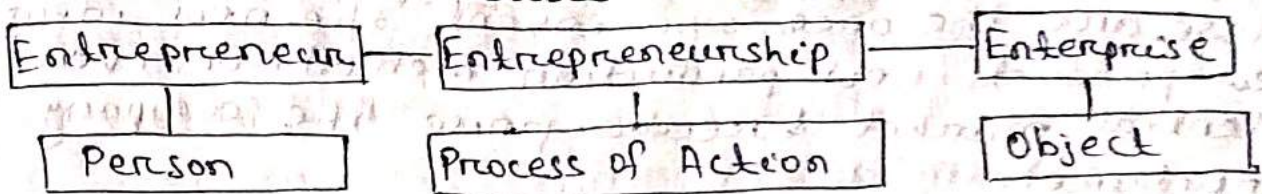 Entrepreneur Entrepreneurship Enterprise
Person Process of Action Object